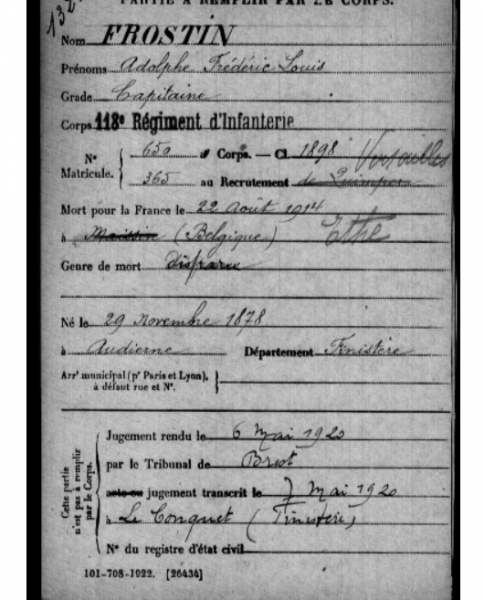 PARTIE A REMPLIR PAR LE CORPS.
Nom FROSTIN
Prénoms Adolphe Frédéric Louis
Grade Capitaine
Corps 118e Régiment d'Infanterie
N° Matricule. 650 au Corps. — Cl 1898 Versailles
365 au Recrutement de Quimper
Mort pour la France le 22 Août 1914
à Maissin (Belgique) Ethe
Genre de mort disparu
Né le 29 novembre 1878
à Audierne Département Finistère
Arrt municipal (pr Paris et Lyon),
à défaut rue et N°.
Cette partie n'est pas à remplir par le Corps.
Jugement rendu le 6 Mai 1920
par le Tribunal de Brest
acte ou jugement transcrit le 7 Mai 1920
à Le Conquet (Finistère)
N° du registre d'état civil
101-708-1922. [26434]